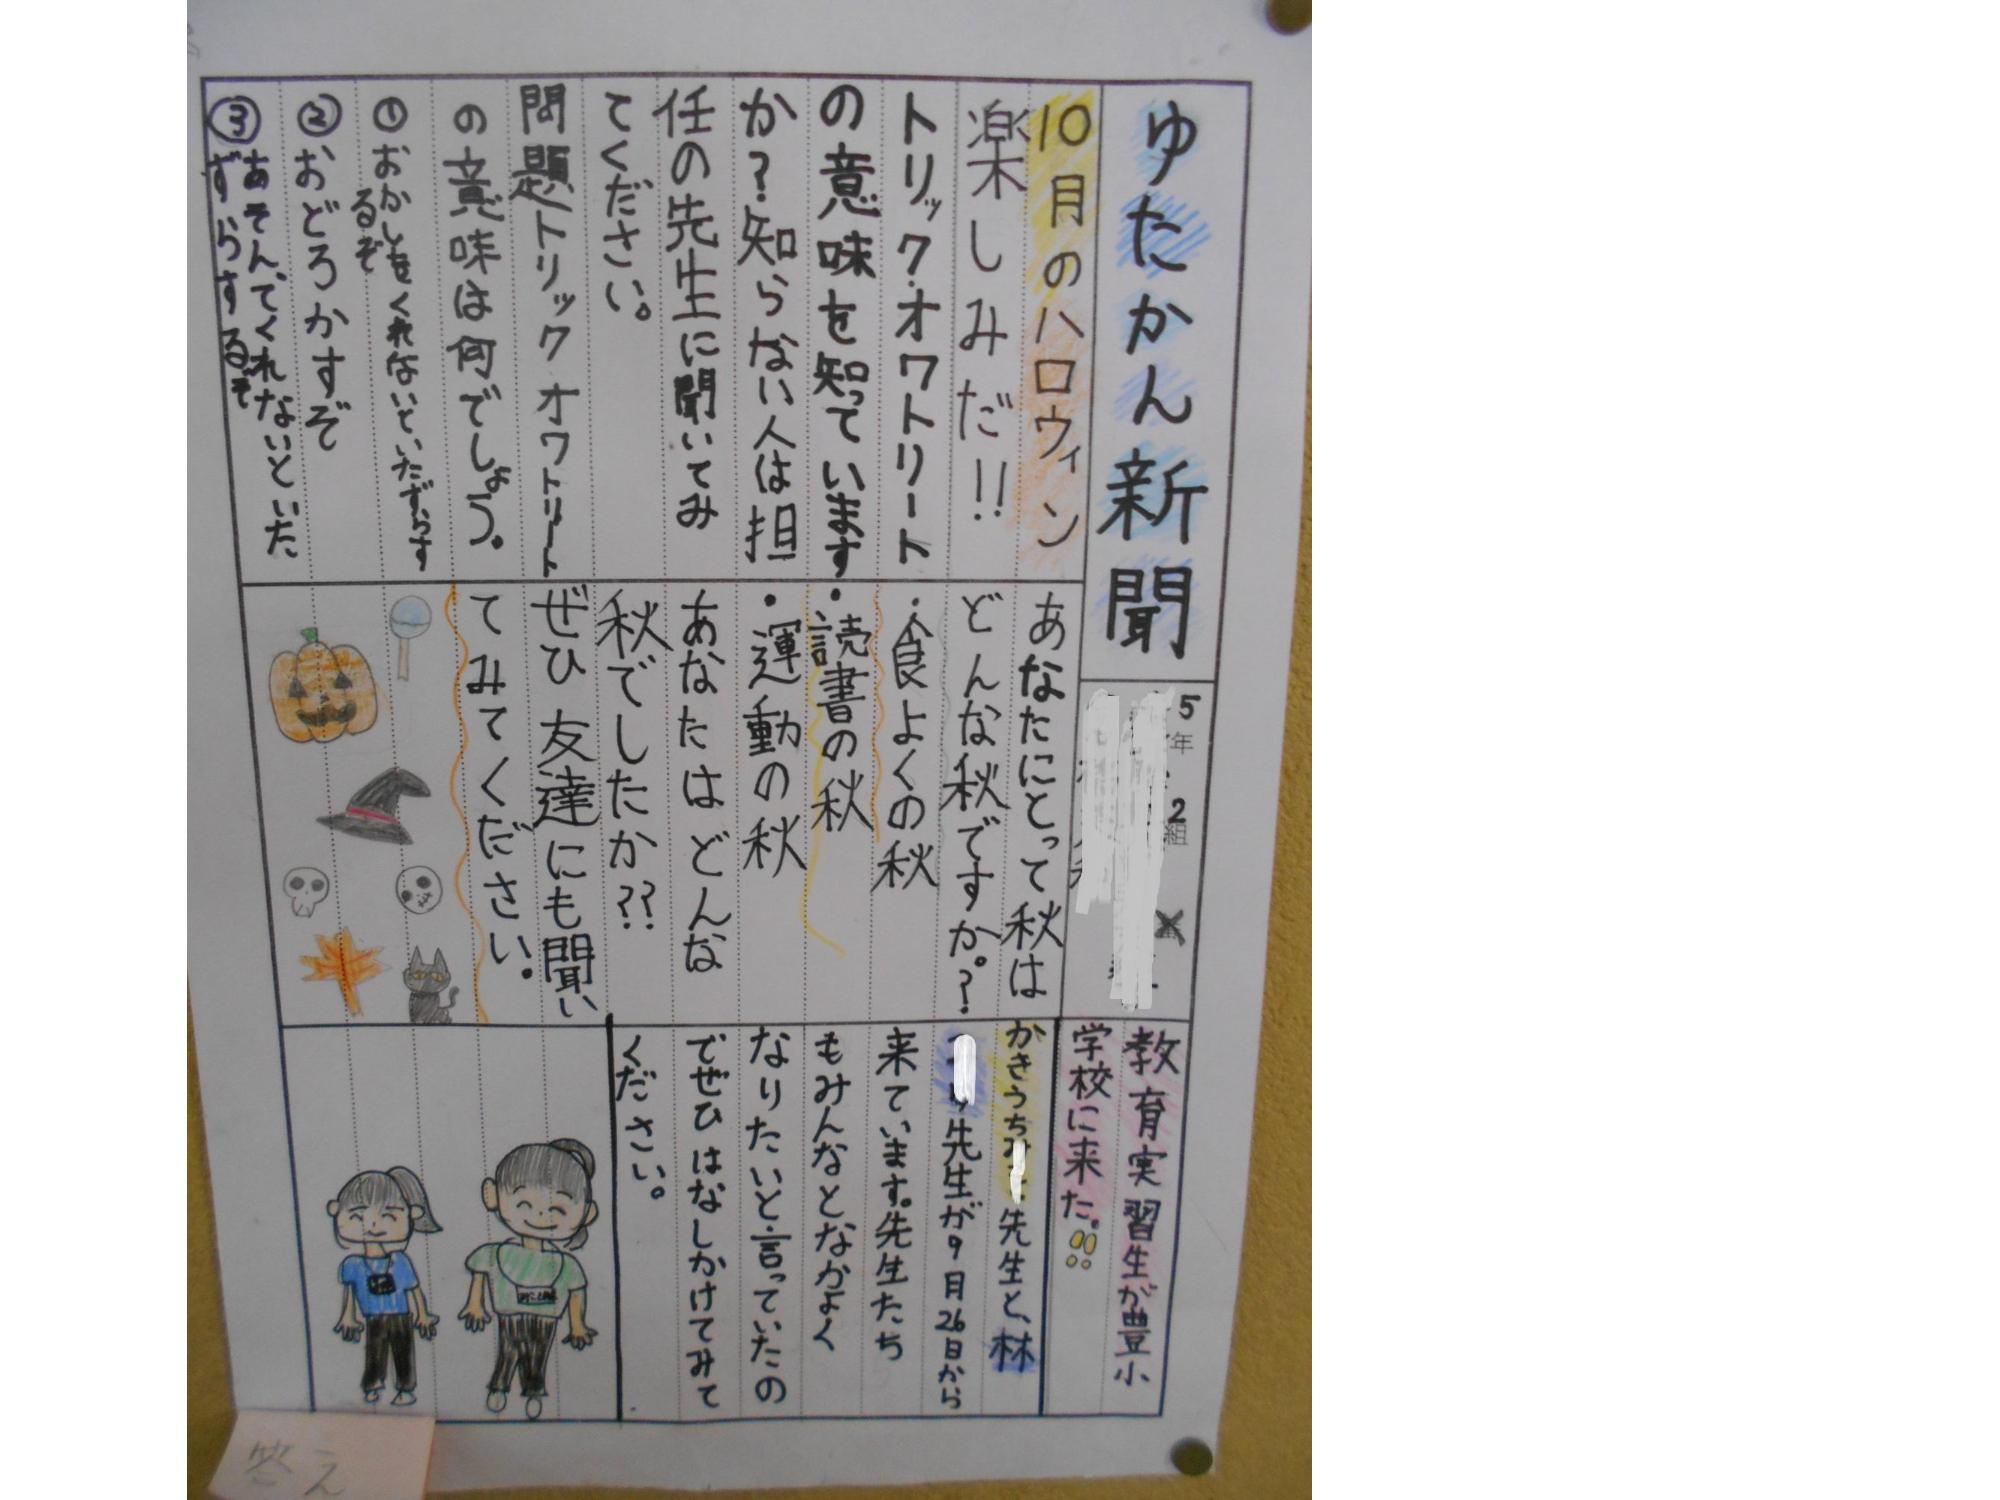 ゆたかん新聞
5年2組
10月のハロウィン
楽しみだ!!
トリック・オワトリート
の意味を知っています
か?知らない人は担
任の先生に聞いてみ
てください。
問題トリックオワトリート
の意味は何でしょう。
①おかしをくれないといたずらす
るぞ
②おどろかすぞ
③あそんでくれないといた
ずらするぞ
あなたにとって秋は
どんな秋ですか。?
・食よくの秋
・読書の秋
・運動の秋
あなたはどんな
秋でしたか??
ぜひ友達にも聞い
てみてください。
教育実習生が豊小
学校に来た。!!
かきうち
先生と、林
先生が9月26日から
来ています。先生たち
もみんなとなかよく
なりたいと言っていたの
でぜひはなしかけてみて
ください。
答え